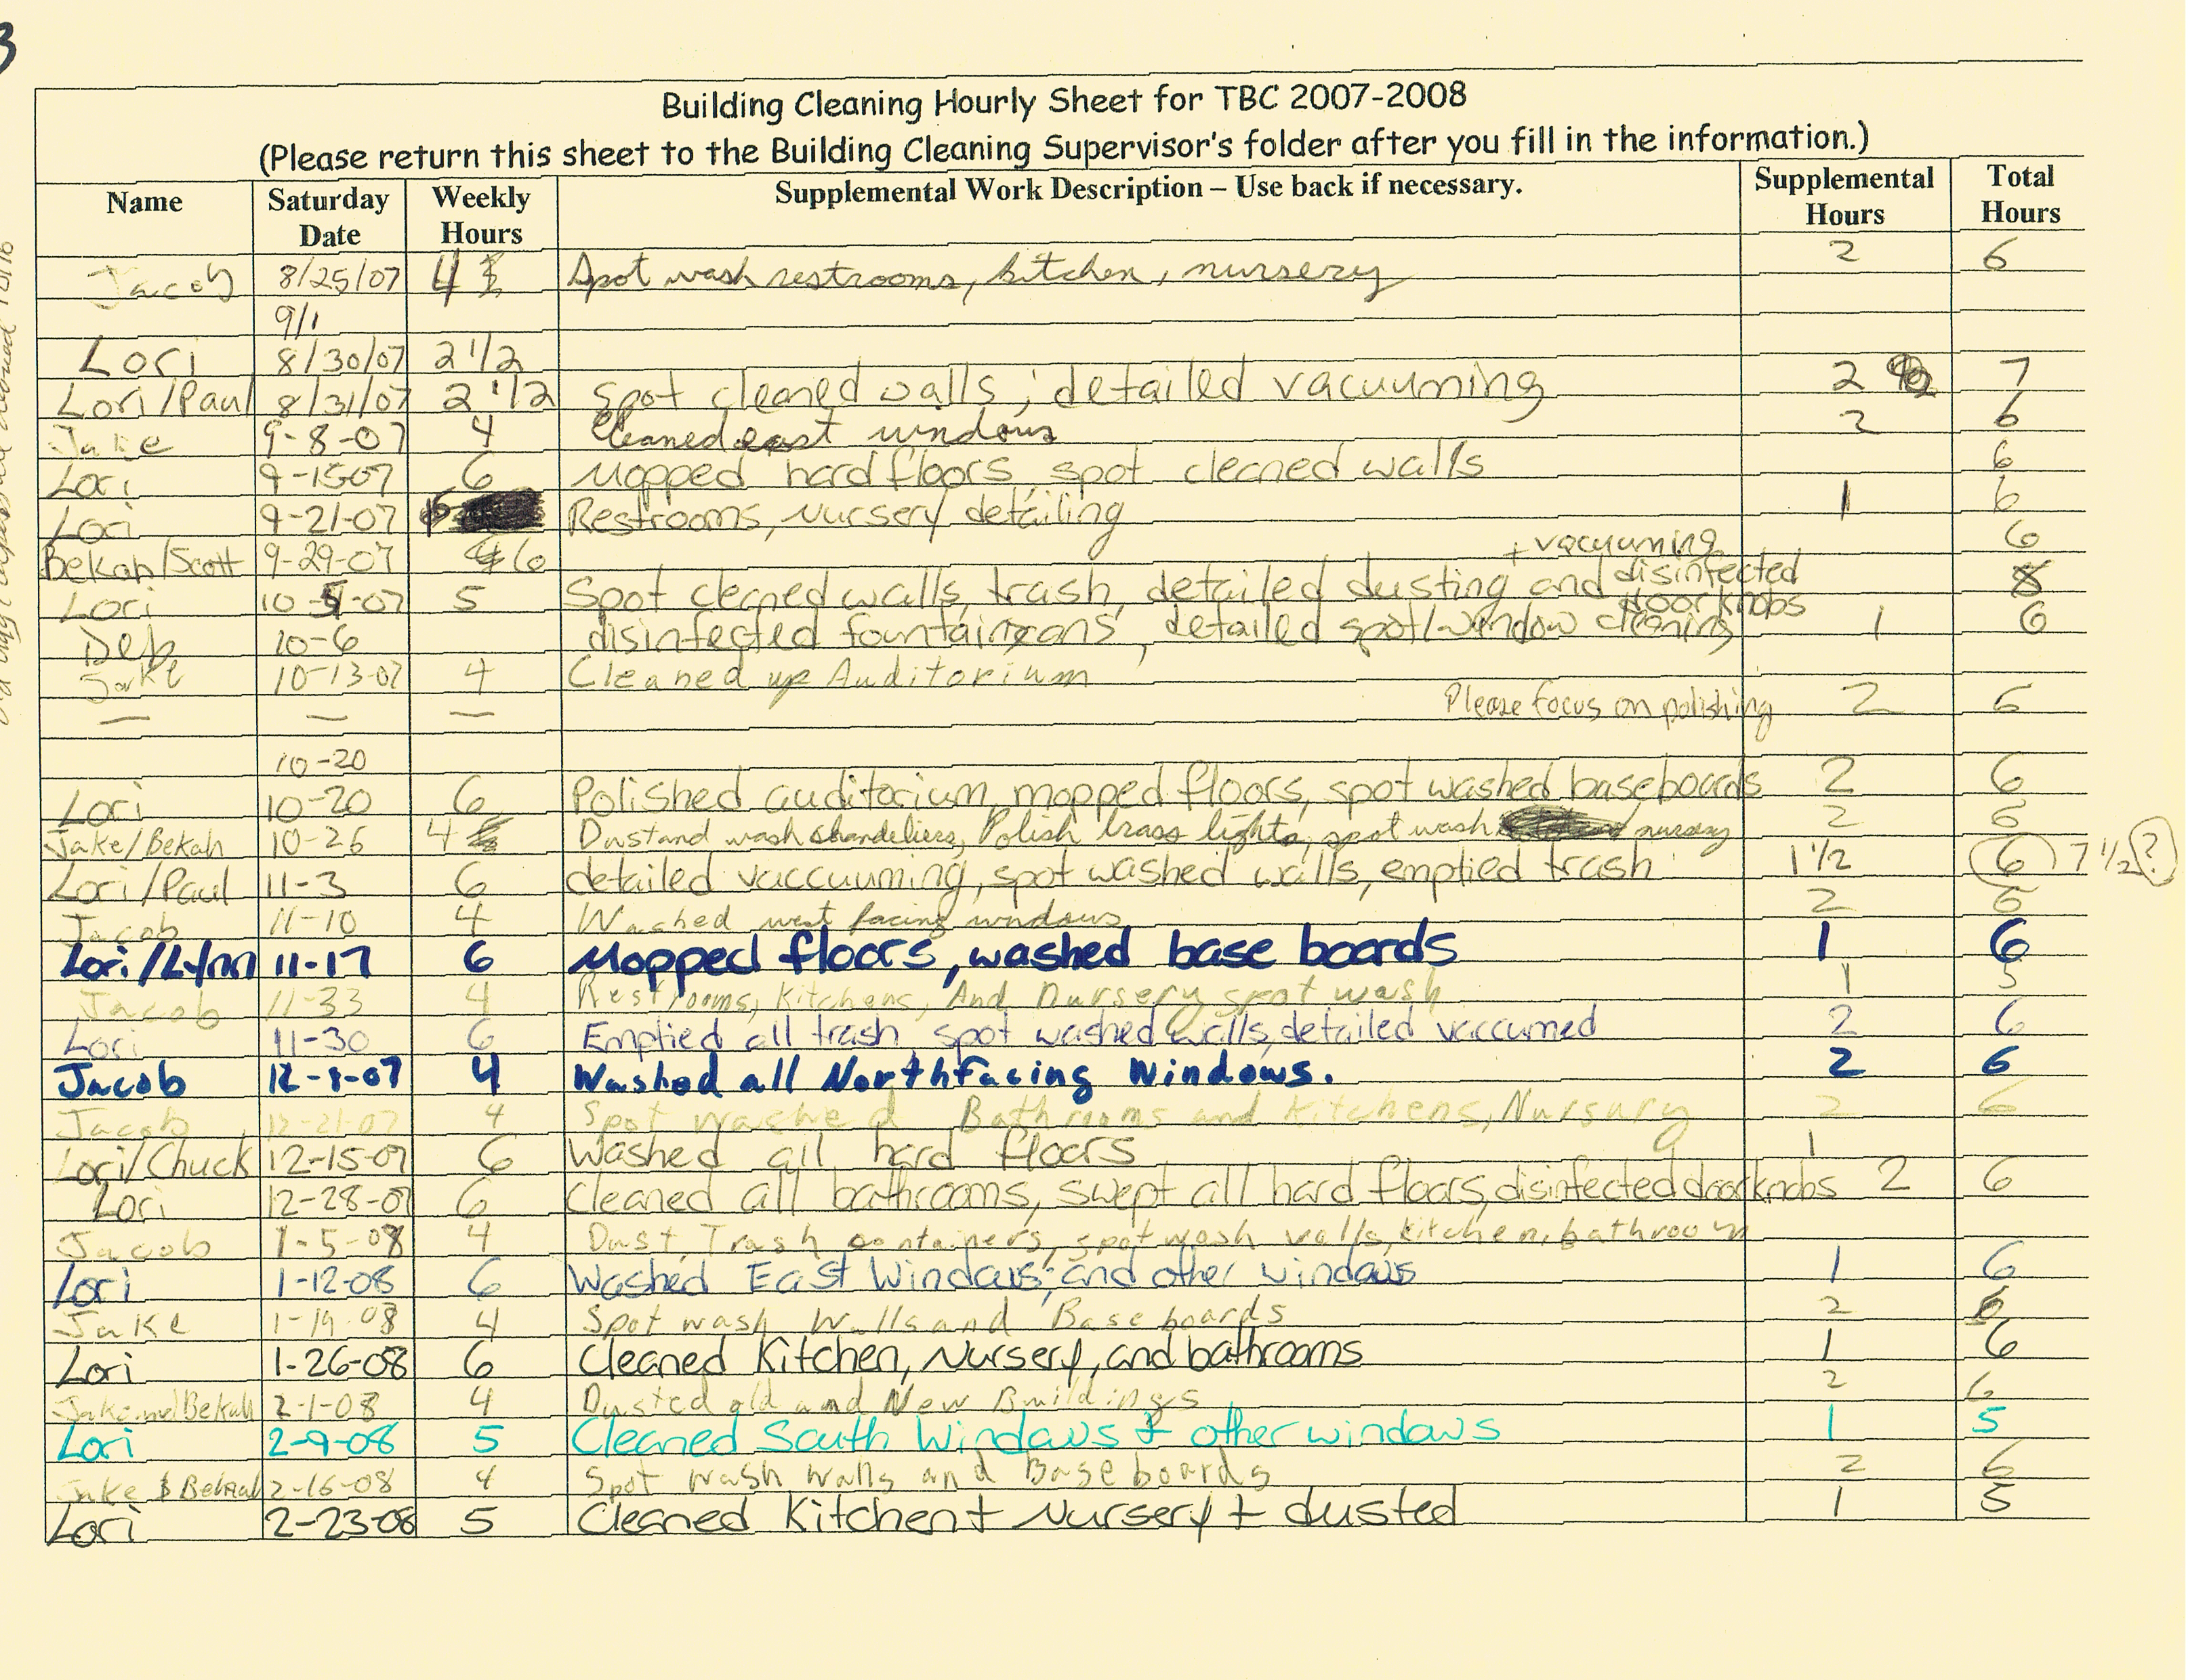 3
Building Cleaning Hourly Sheet for TBC 2007-2008
(Please return this sheet to the Building Cleaning Supervisor's folder after you fill in the information.)
Name Saturday Date Weekly Hours Supplemental Work Description – Use back if necessary. Supplemental Hours Total Hours
Jacob 8/25/07 4 Spot wash restrooms, kitchen, nursery 2 6
9/1
Lori 8/30/07 2 1/2
Lori/Paul 8/31/07 2 1/2 Spot cleaned walls; detailed vacuuming 2 7
Jake 9-8-07 4 Cleaned east windows 2 6
Lori 9-15-07 6 Mopped hard floors, spot cleaned walls 6
Lori 9-21-07 Restrooms, Nursery detailing 1 6
Bekah/Scott 9-29-07 6 6
+ vacuuming
Lori 10-5-07 5 Spot cleaned walls, trash, detailed dusting and disinfected doorknobs 8
Deb 10-6 disinfected fountains, detailed spot/window cleaning 1 6
Jake 10-13-07 4 Cleaned up Auditorium
— — — Please focus on polishing 2 6
10-20
Lori 10-20 6 Polished auditorium, mopped floors, spot washed baseboards 2 6
Jake/Bekah 10-26 4 Dust and wash chandeliers, Polish brass lights, spot wash nursery 2 6
Lori/Paul 11-3 6 detailed vaccuuming, spot washed walls, emptied trash 1 1/2 6 7 1/2 ?
Jacob 11-10 4 Washed west facing windows 2 6
Lori/Lynn 11-17 6 Mopped floors, washed base boards 1 6
Jacob 11-33 4 Restrooms, Kitchens, And Nursery spot wash 1 5
Lori 11-30 6 Emptied all trash, spot washed walls, detailed vaccumed 2 6
Jacob 12-8-07 4 Washed all North facing Windows. 2 6
Jacob 12-21-07 4 Spot washed Bathrooms and Kitchens, Nursury 2 6
Lori/Chuck 12-15-07 6 Washed all hard floors 1
Lori 12-28-07 6 Cleaned all bathrooms, swept all hard floors, disinfected doorknobs 2 6
Jacob 1-5-08 4 Dust, Trash containers, spot wash walls, kitchen, bathroom
Lori 1-12-08 6 Washed East Windows; and other windows 1 6
Jake 1-19-08 4 Spot wash Walls and Baseboards 2 6
Lori 1-26-08 6 Cleaned Kitchen, Nursery, and bathrooms 1 6
Jake and Bekah 2-1-08 4 Dusted old and New Buildings 2 6
Lori 2-9-08 5 Cleaned South Windows + other windows 1 5
Jake & Bekah 2-16-08 4 Spot wash walls and Baseboards 2 6
Lori 2-23-08 5 Cleaned Kitchen + Nursery + dusted 1 5